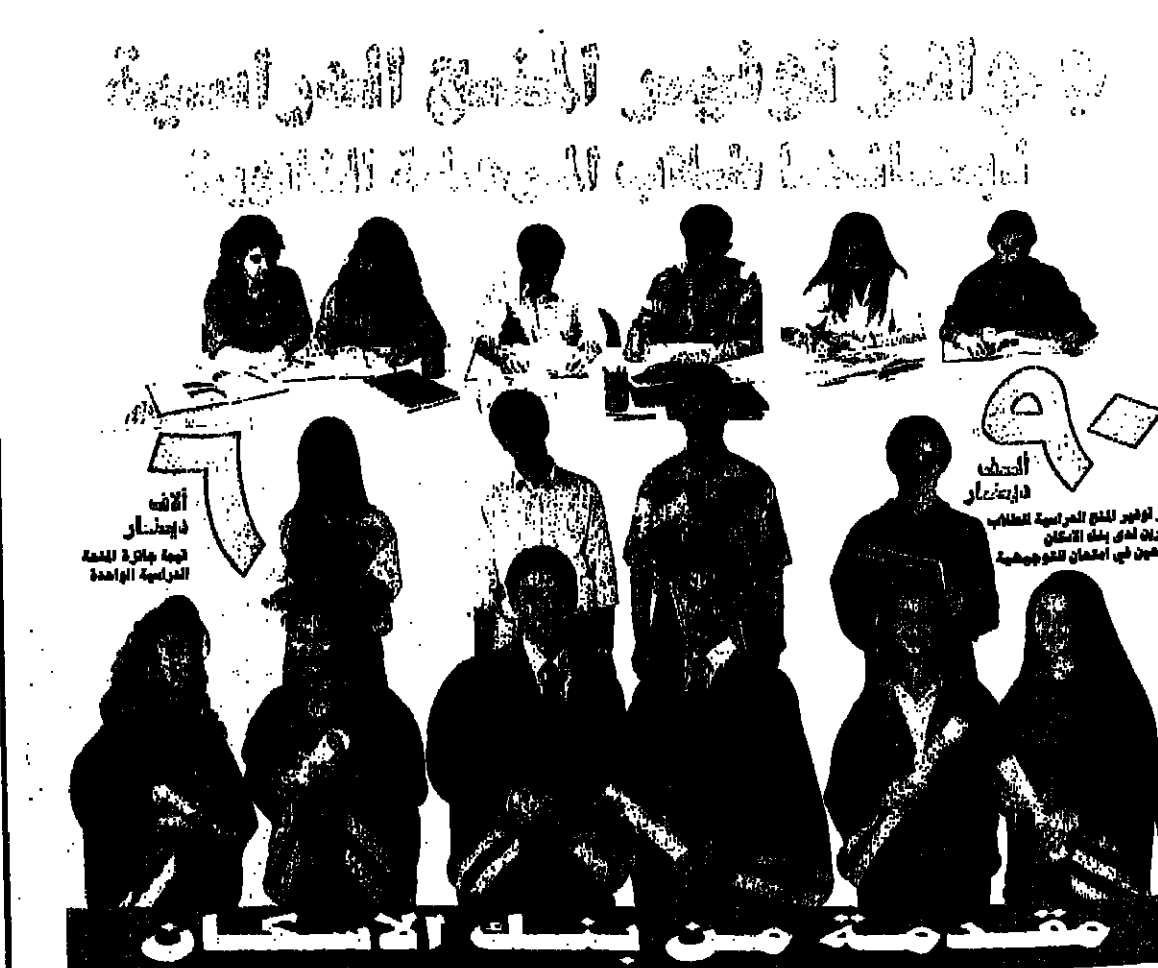 جوائز توفير المنح الدراسية
لطلاب المرحلة الثانوية
٩٠
ألف
دينار
توفير المنح الدراسية للطلاب
لدى بنك الاسكان
في امتحان التوجيهية
٦
آلاف
دينار
قيمة جائزة المنحة
الدراسية الواحدة
مقدمة من بنك الاسكان